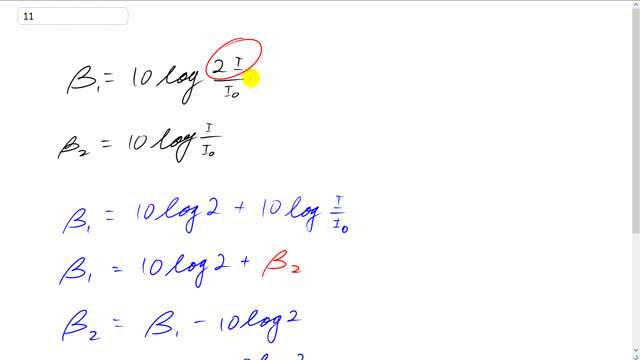 11
β₁ = 10 log 2I/I₀
β₂ = 10 log I/I₀
β₁ = 10 log 2 + 10 log I/I₀
β₁ = 10 log 2 + β₂
β₂ = β₁ - 10 log 2